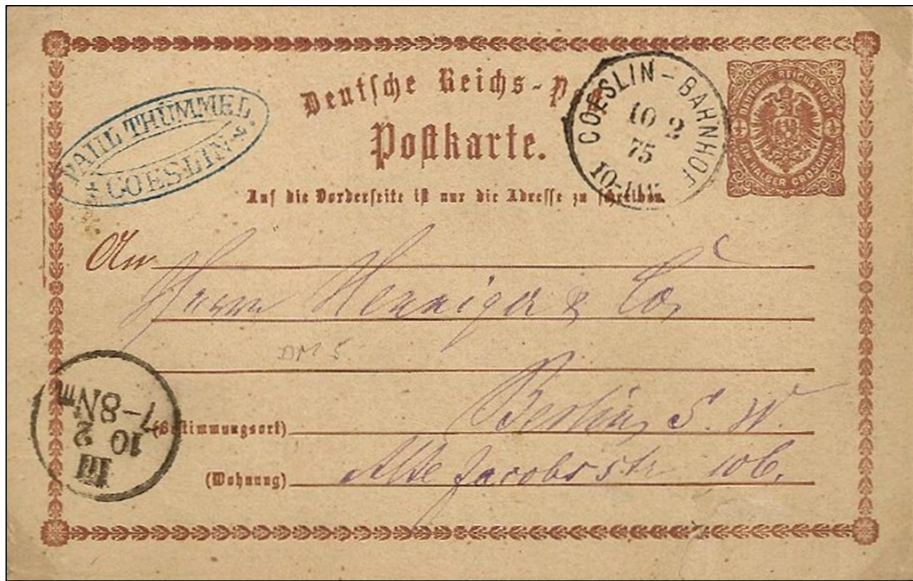 Deutsche Reichs-P
Postkarte.
Auf die Vorderseite ist nur die Adresse zu schreiben.
PAUL THÜMMEL
COESLIN
COESLIN - BAHNHOF
10 2
75
DEUTSCHE REICHS-POST
EIN HALBER GROSCHEN
An
Herrn Henniger & Co,
DM 5
(Bestimmungsort)
Berlin, S. W
(Wohnung)
Alte Jacobsstr 106.
III
10
2
7-8N